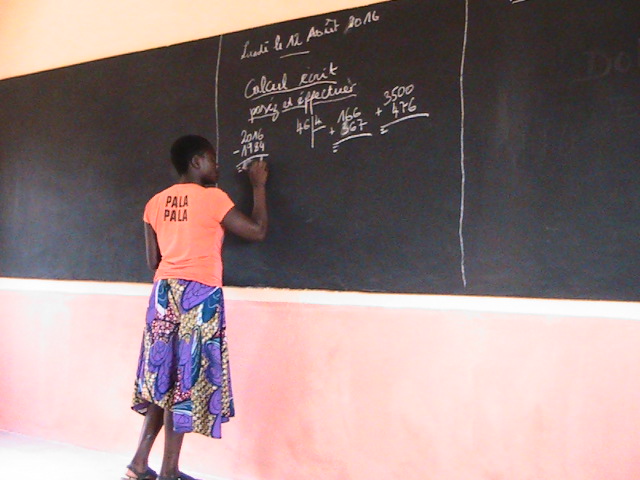 Lundi le 12 Août 2016
Calcul écrit
posez et éffectuer
2016
-1984
46|4
166
+ 367
3500
+ 476
PALA
PALA